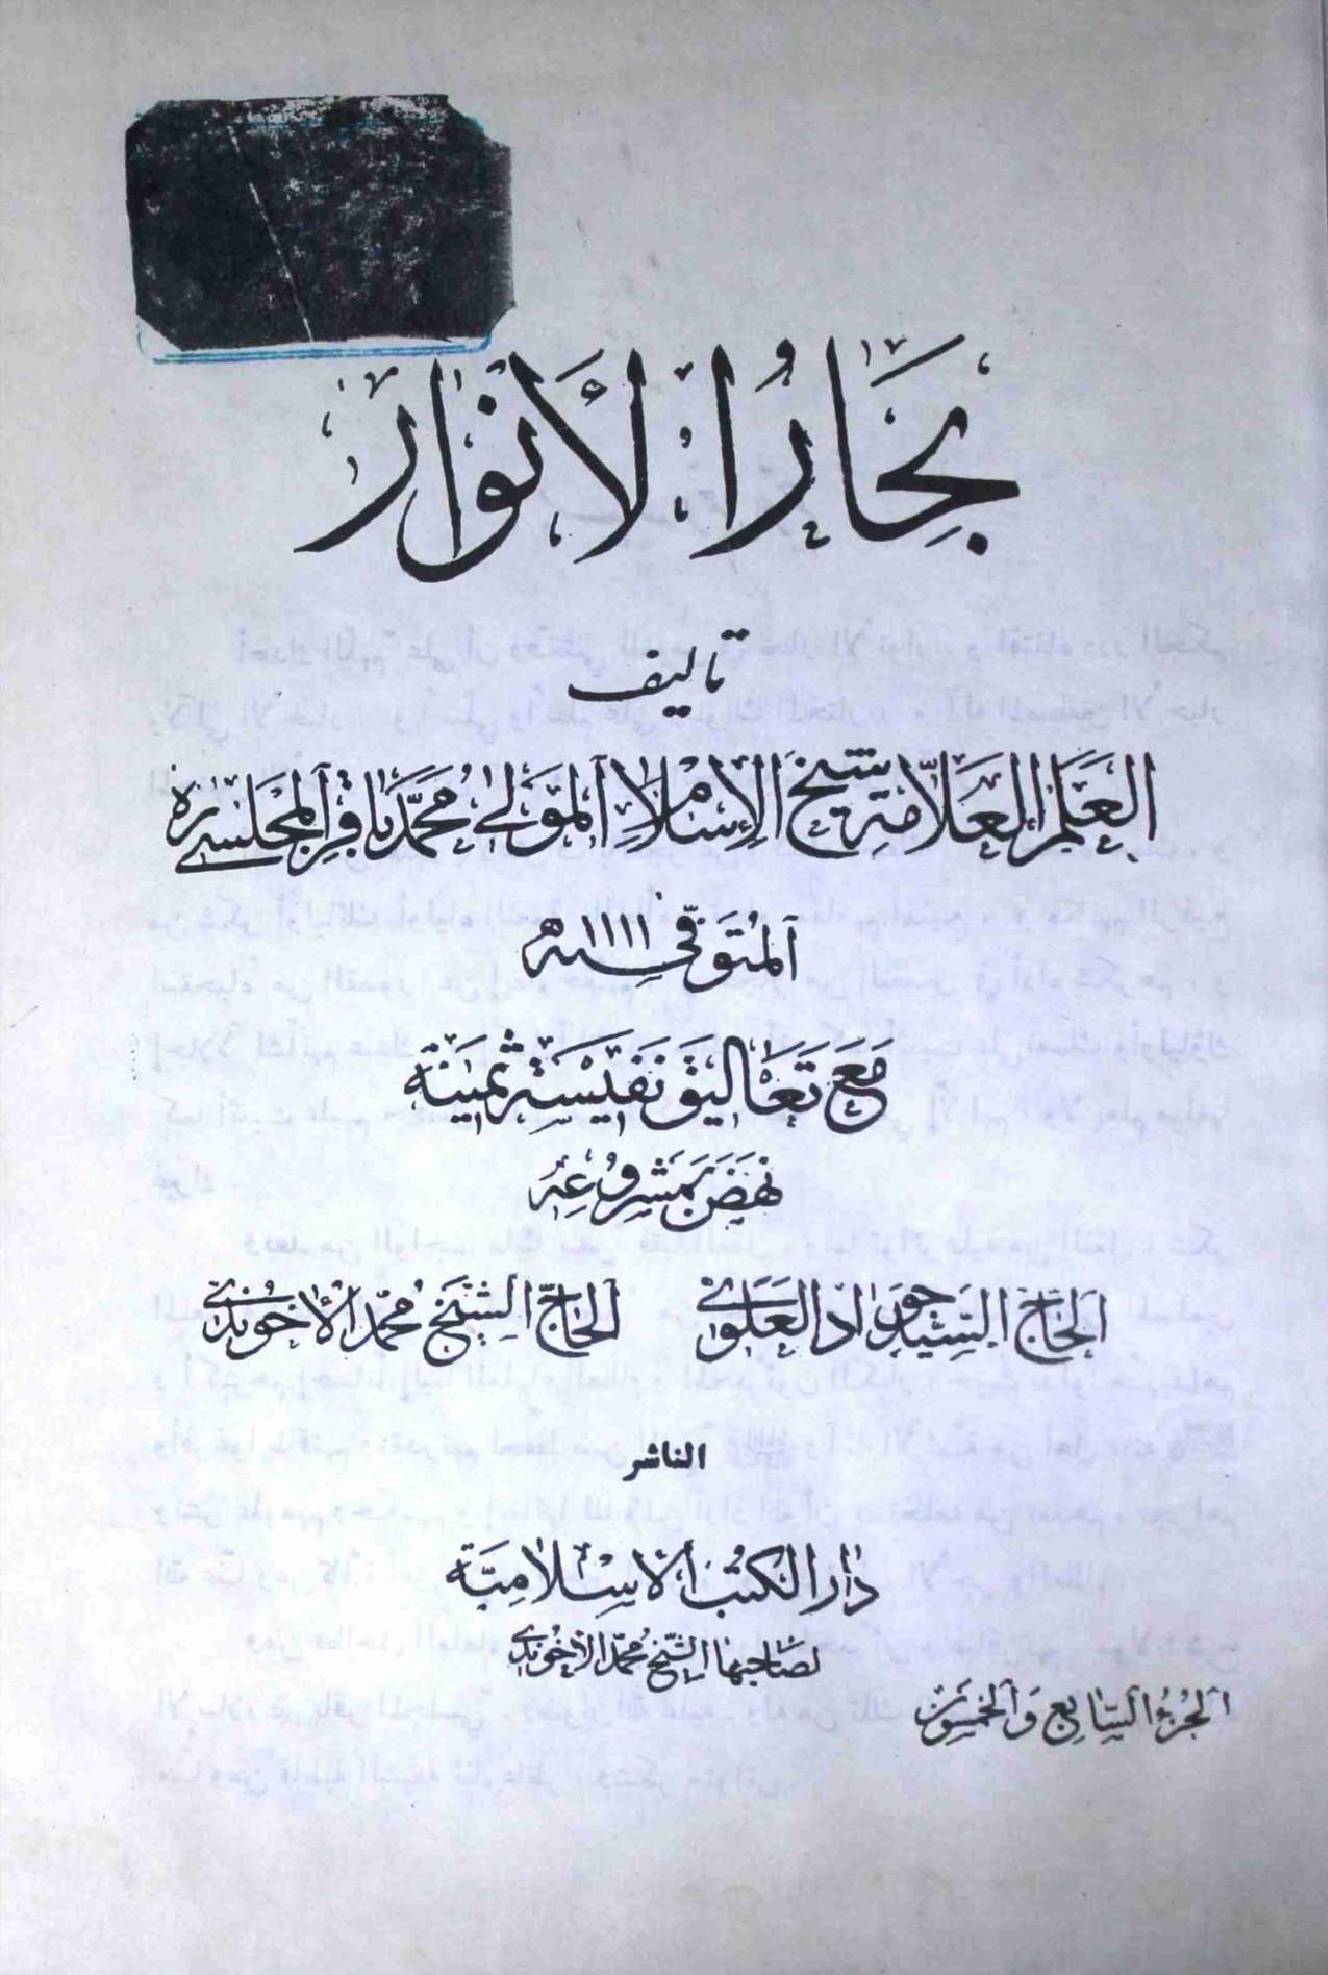 بِحَارُ الْأَنْوَارِ
تأليف
العَلَم العَلَّامة شيخ الإسلام المَوْلَى مُحَمَّد بَاقِر المَجْلِسِي قده
المُتَوَفّى سنة ١١١١ هـ
مَعَ تَعَاليق نَفيسَة ثمينة
نهَضَ بمَشروُعِهِ
الحَاج السَيّد جَوَاد العَلَوي الحاجّ الشيَخ مُحَمّد الآخُوندي
الناشر
دار الكتب الاسلامية
لصَاحِبها الشيخ مُحمّد الآخُوندي
الجُزءُ السّابع وَالخمسُون